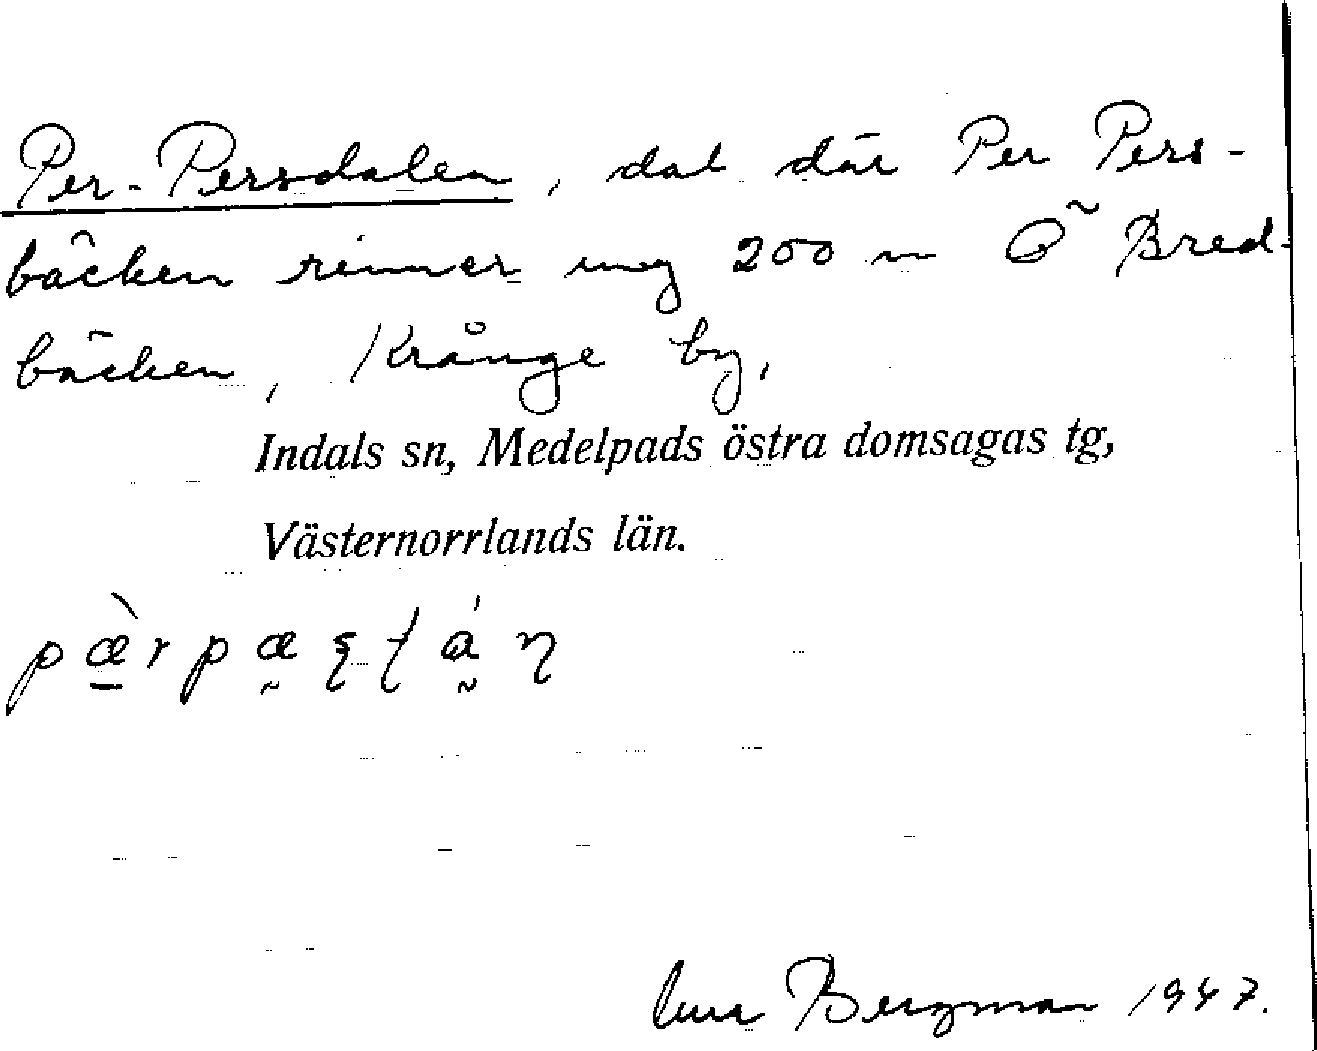 Per-Persdalen, dal där Per Pers-
bäcken rinner ung 200 m Ö Bred-
bäcken, Krånge by,
Indals sn, Medelpads östra domsagas tg,
Västernorrlands län.
Bergman 1947.